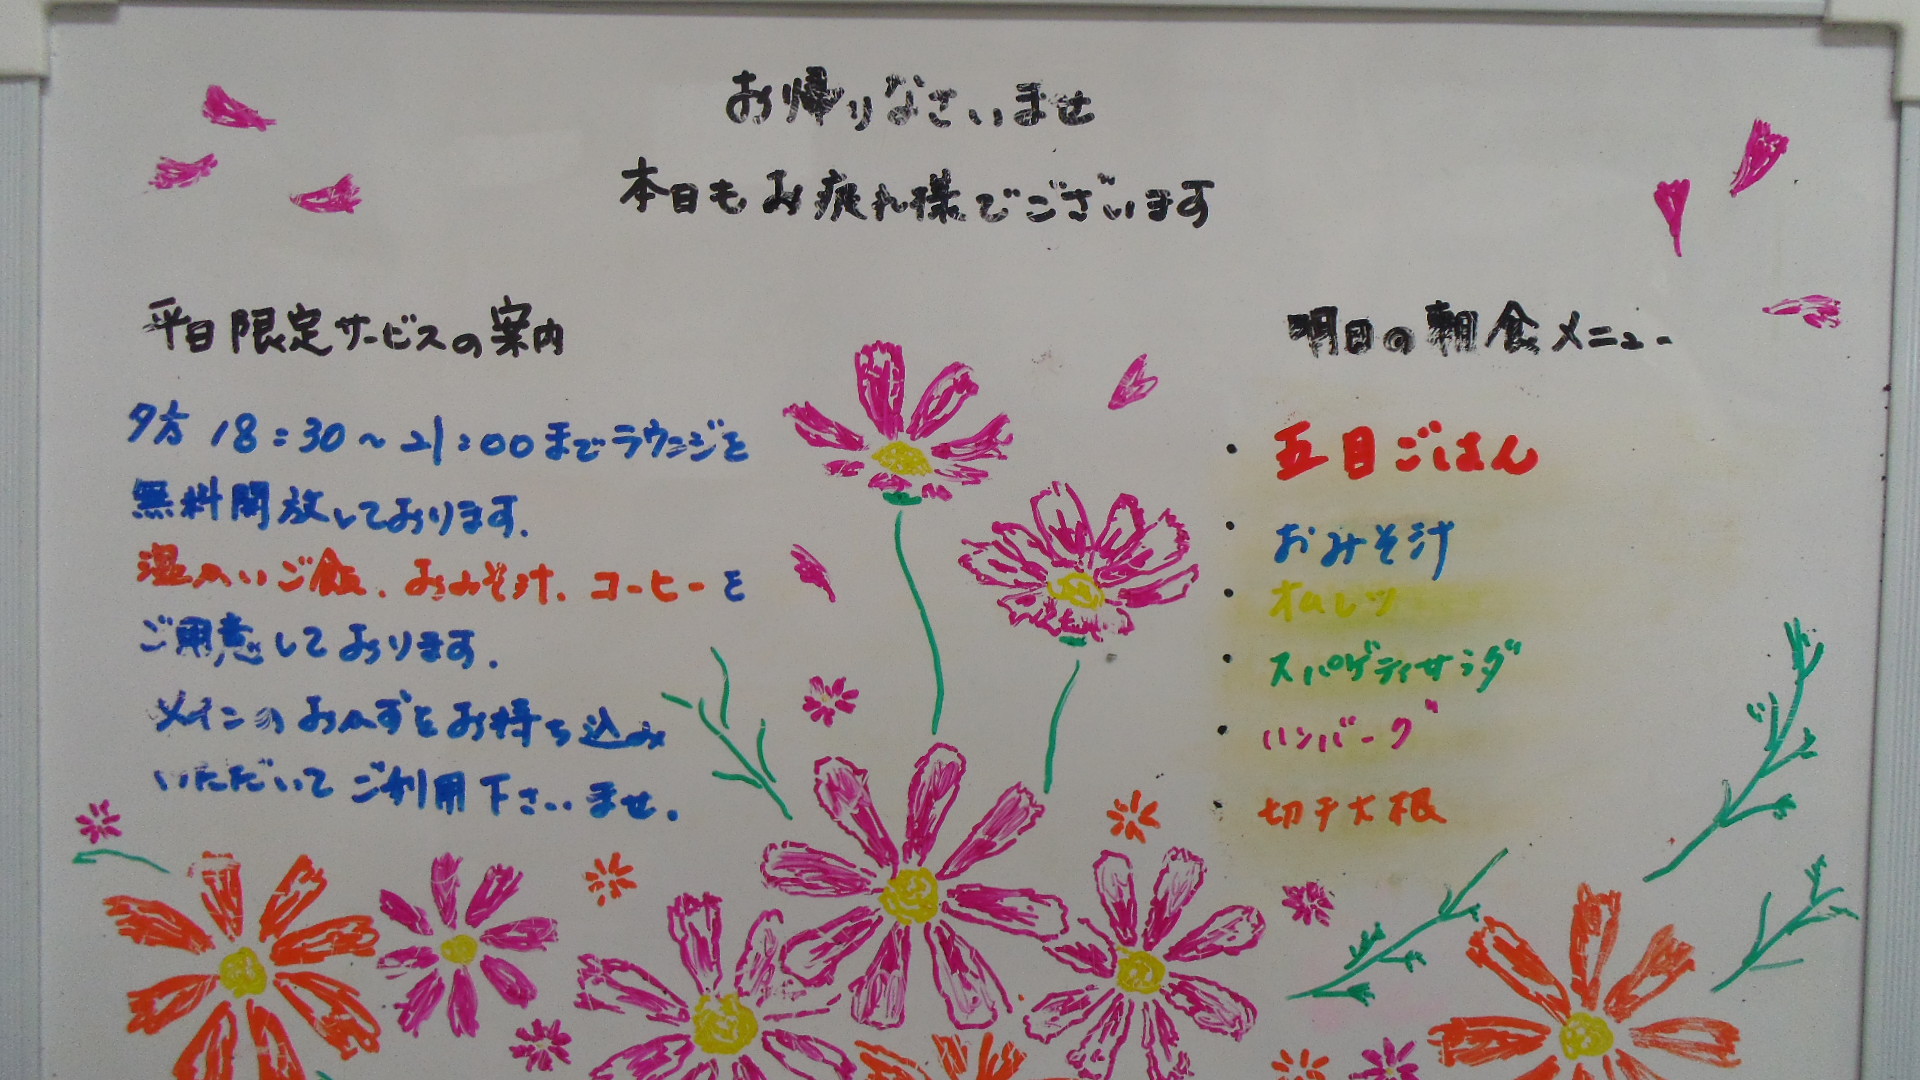 お帰りなさいませ
本日もお疲れ様でございます
平日限定サービスの案内
夕方 18:30～21:00までラウンジを
無料開放しております.
温かいご飯、おみそ汁、コーヒーを
ご用意しております.
メインのおかずをお持ち込み
いただいてご利用下さいませ.
明日の朝食メニュー
・五目ごはん
・おみそ汁
・オムレツ
・スパゲティサラダ
・ハンバーグ
・切干大根